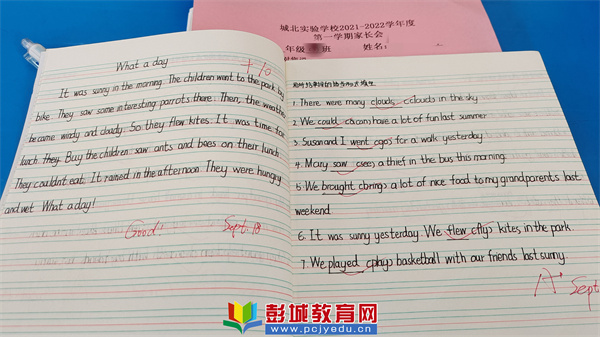 城北实验学校2021-2022学年度
第一学期家长会
年级 班 姓名:
What a day
+10
It was sunny in the morning. The children went to the park by
bike. They saw some interesting parrots there. Then, the weather
became windy and cloudy. So they flew kites. It was time for
lunch. They. Buy the children saw ants and bees on their lunch.
They couldn't eat. It rained in the afternoon. They were hungry
and wet. What a day!
Good!
Sept. 18
1. There were many clouds (cloud) in the sky.
2. We could (can) have a lot of fun last summer
3. Susan and I went (go) for a walk yesterday.
4. Mary saw (see) a thief in the bus this morning.
5. We brought (bring) a lot of nice food to my grandparents last
weekend.
6. It was sunny yesterday. We flew (fly) kites in the park.
7. We played (play) basketball with our friends last sunny.
A+
Sept
彭城教育网
www.pcjyedu.cn